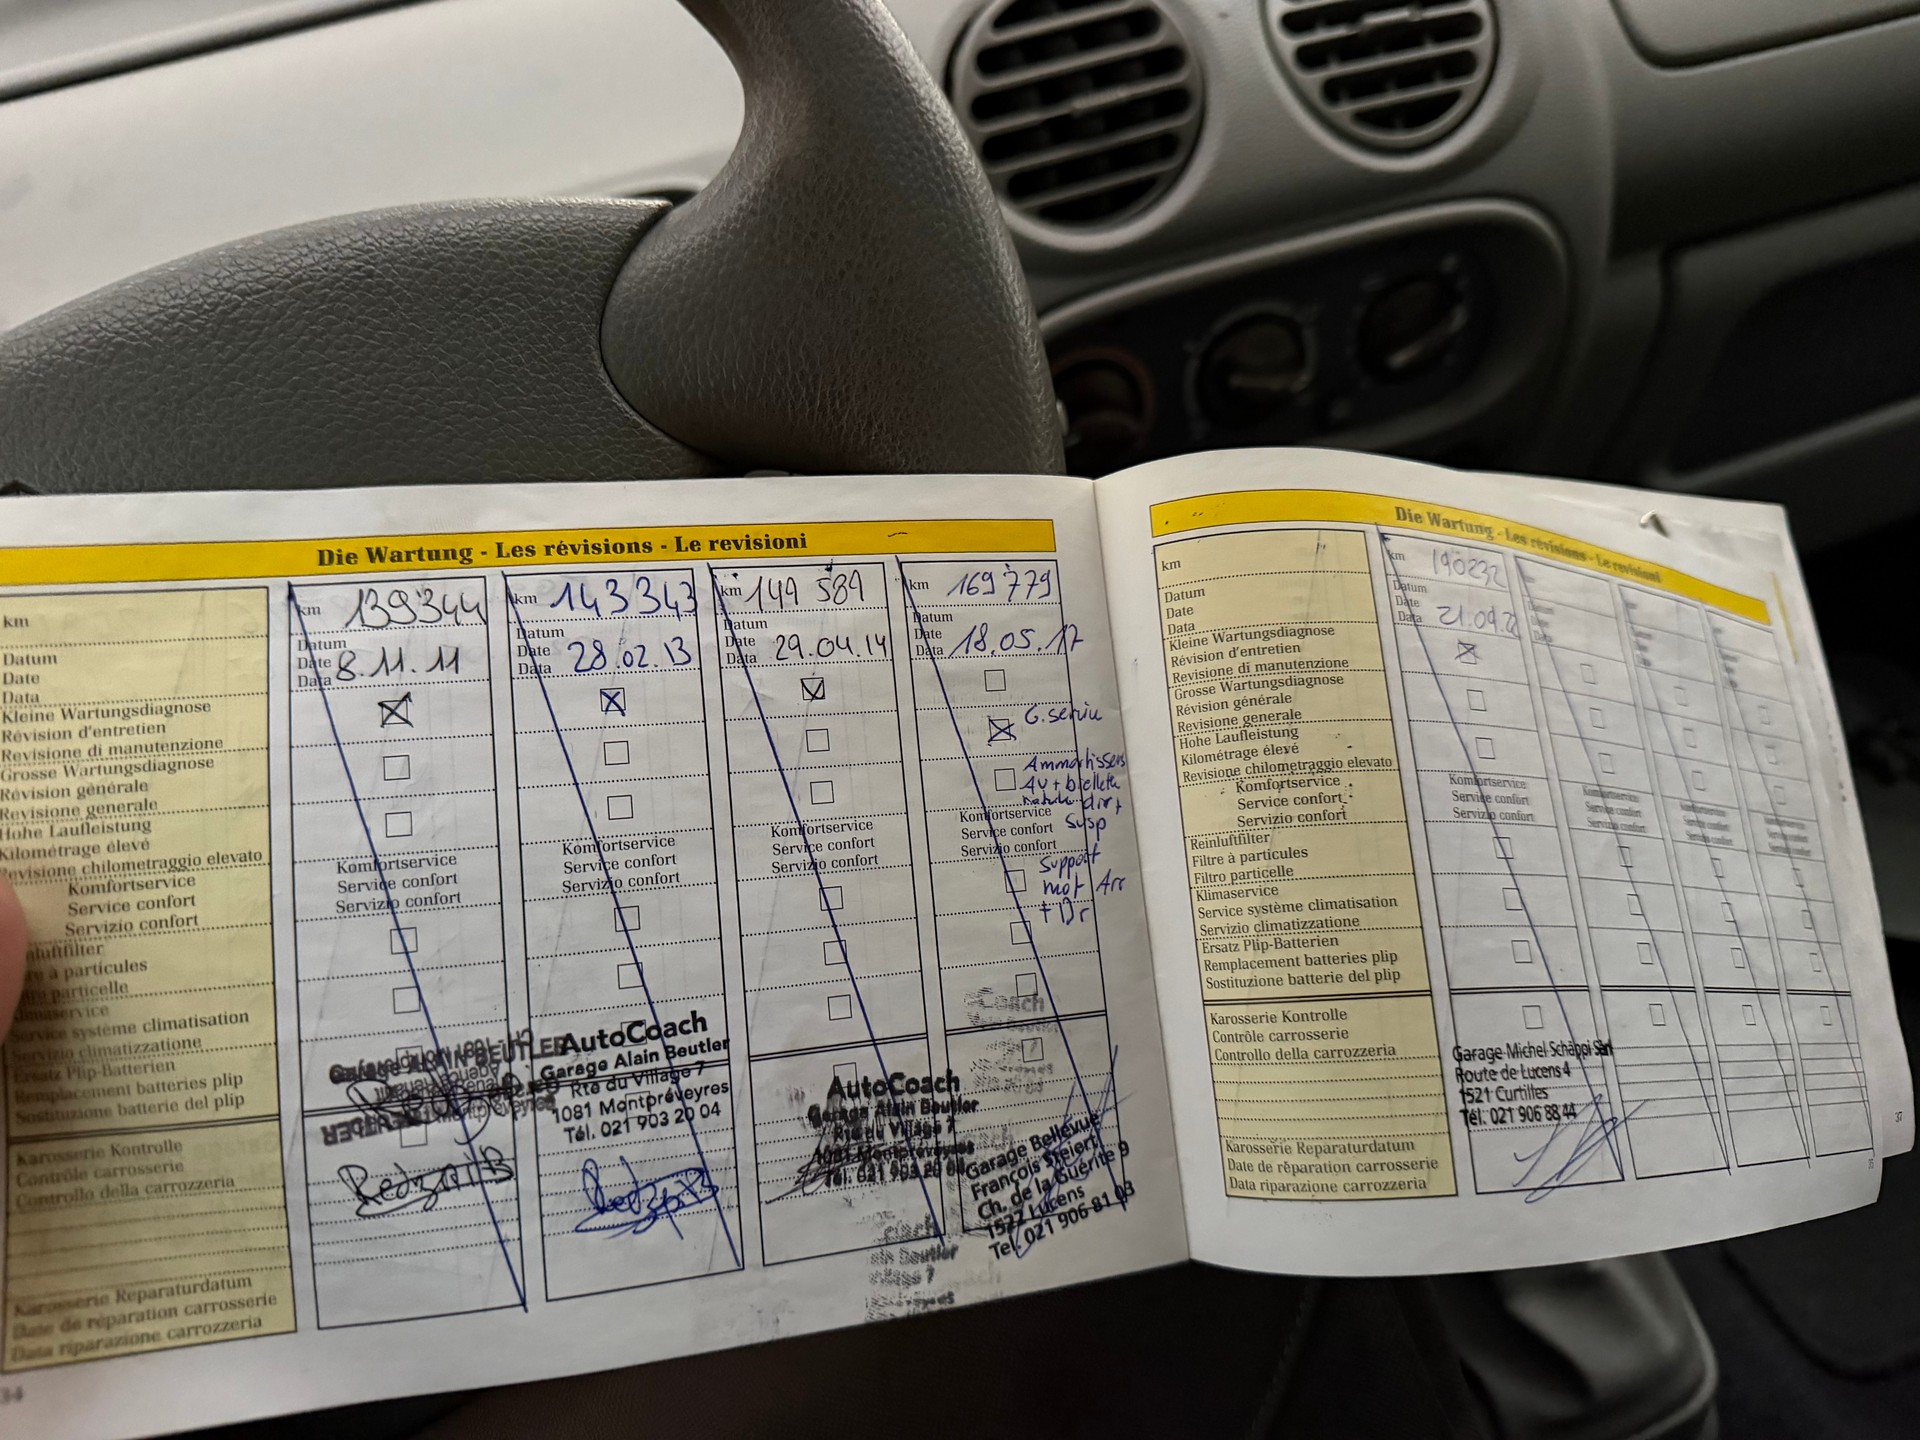 Die Wartung - Les révisions - Le revisioni
km
Datum
Date
Data
Kleine Wartungsdiagnose
Révision d'entretien
Revisione di manutenzione
Grosse Wartungsdiagnose
Révision générale
Revisione generale
Hohe Laufleistung
Kilométrage élevé
Revisione chilometraggio elevato
Komfortservice
Service confort
Servizio confort
Service système climatisation
Servizio climatizzatione
Ersatz Plip-Batterien
Remplacement batteries plip
Sostituzione batterie del plip
Karosserie Kontrolle
Contrôle carrosserie
Controllo della carrozzeria
Karosserie Reparaturdatum
Date de réparation carrosserie
Data riparazione carrozzeria
34
km 139344
Datum
Date 8.11.11
Data
Komfortservice
Service confort
Servizio confort
Garage ALAIN BEUTLER
km 143343
Datum
Date 28.02.13
Data
Komfortservice
Service confort
Servizio confort
AutoCoach
Garage Alain Beutler
Rte du Village 7
1081 Montpréveyres
Tél. 021 903 20 04
km 149 589
Datum
Date 29.04.14
Data
Komfortservice
Service confort
Servizio confort
AutoCoach
Garage Alain Beutler
Rte du Village 7
1081 Montpréveyres
Tél. 021 903 20 04
km 169 779
Datum
Date
Data 18.05.17
Komfortservice
Service confort
Servizio confort
Susp
Support
mot Arr
+ Dr
Garage Bellevue
François Steiert
Ch. de la Guérite 9
1522 Lucens
Tel. 021 906 81 03
Die Wartung - Les révisions - Le revisioni
km
Datum
Date
Data
Kleine Wartungsdiagnose
Révision d'entretien
Revisione di manutenzione
Grosse Wartungsdiagnose
Révision générale
Revisione generale
Hohe Laufleistung
Kilométrage élevé
Revisione chilometraggio elevato
Komfortservice
Service confort
Servizio confort
Reinluftfilter
Filtre à particules
Filtro particelle
Klimaservice
Service système climatisation
Servizio climatizzatione
Ersatz Plip-Batterien
Remplacement batteries plip
Sostituzione batterie del plip
Karosserie Kontrolle
Contrôle carrosserie
Controllo della carrozzeria
Karosserie Reparaturdatum
Date de réparation carrosserie
Data riparazione carrozzeria
km 190232
Datum
Date
Data
Komfortservice
Service confort
Servizio confort
Garage Michel Schäppi Sàrl
Route de Lucens 4
1521 Curtilles
Tél. 021 906 88 44
Komfortservice
Service confort
Servizio confort
37